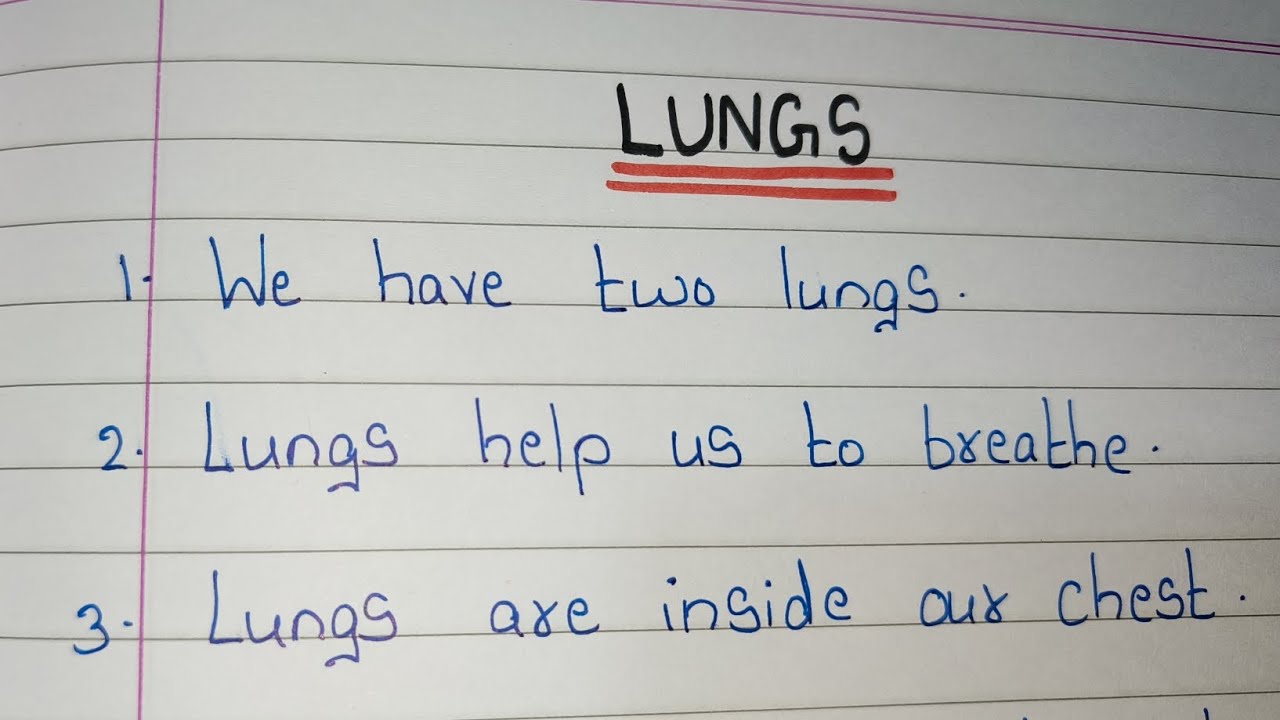 LUNGS
1. We have two lungs.
2. Lungs help us to breathe.
3. Lungs are inside our chest.